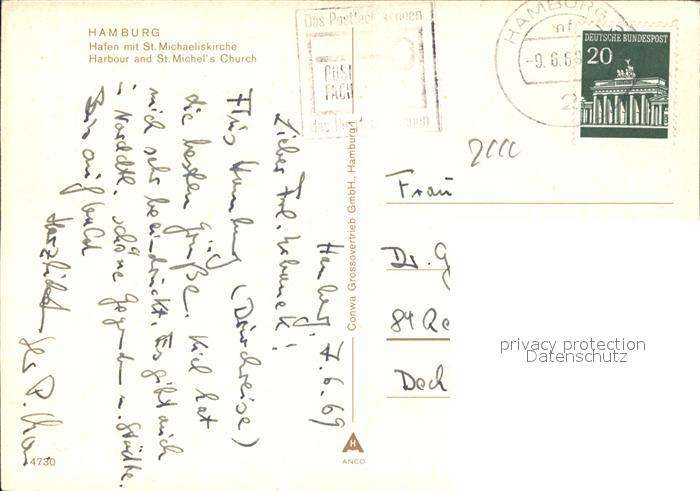 HAMBURG
Hafen mit St. Michaeliskirche
Harbour and St. Michel's Church
Das Postfach
POST
FACH
das Postf
HAMBURG
-9.6.69
2
DEUTSCHE BUNDESPOST
20
Hamburg, 7.6.69
Lieber Frl.
Aus Hamburg (Durchreise)
die besten Grüße. Kiel hat
mich sehr beeindruckt. Es gibt auch
in Norddtl. schöne Gegenden u. Städte.
Bis auf bald
Herzlichst
Ihr P.
Conwa Grossovertrieb GmbH., Hamburg 1
4730
H
ANCO
Frau
Dr. G
84 Re
Dach
privacy protection
Datenschutz